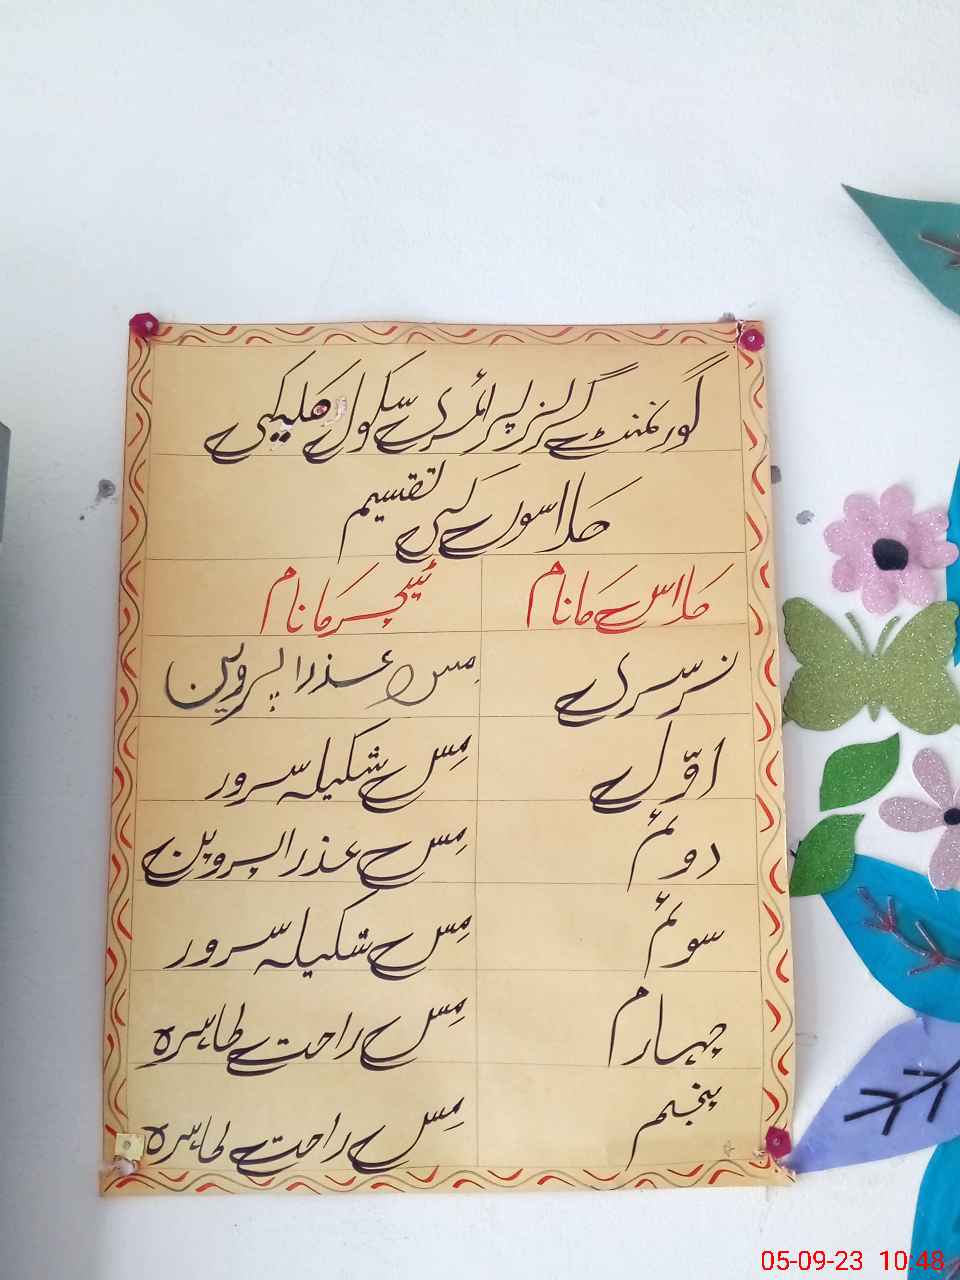 گورنمنٹ گرلز پرائمری سکول کھلیکی
کلاسوں کی تقسیم
کلاس کا نام ٹیچر کا نام
نرسری مس عذرا پروین
اوّل مس شکیلہ سرور
دوئم مس عذرا پروین
سوئم مس شکیلہ سرور
چہارم مس راحت طاہرہ
پنجم مس راحت طاہرہ
05-09-23 10:48